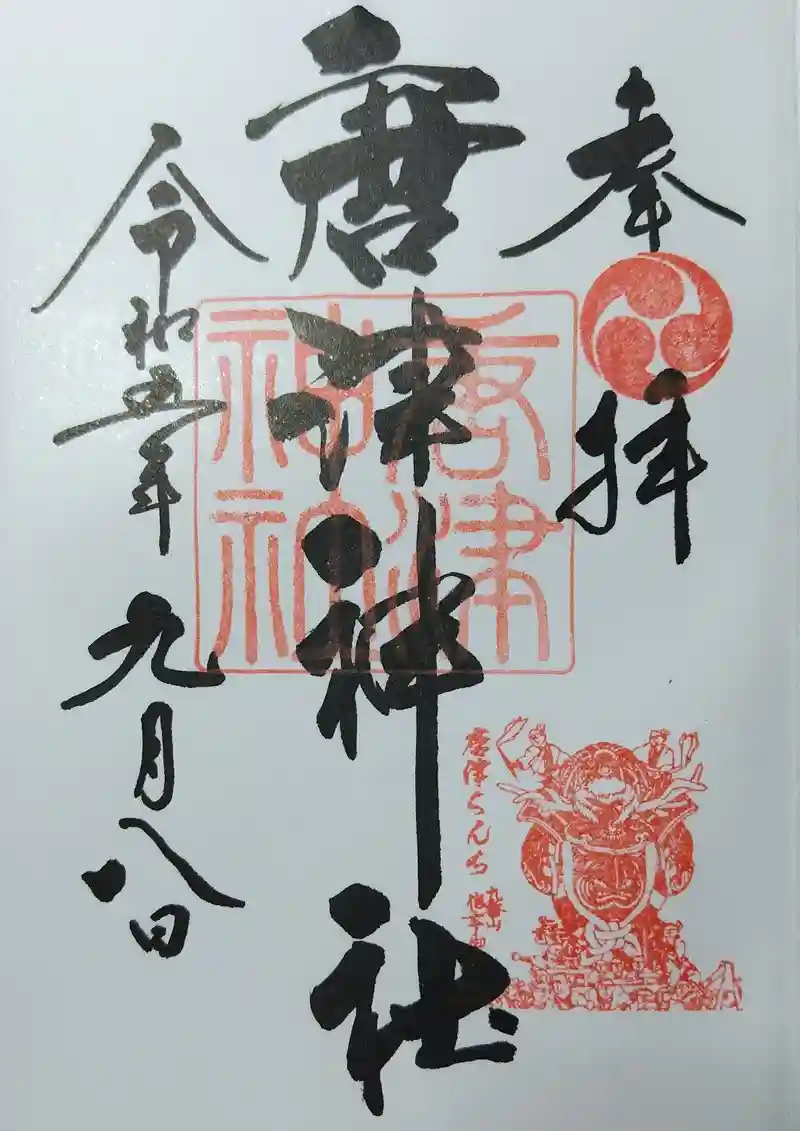 奉拝
唐津神社
令和五年九月八日
唐津神社
唐津くんち